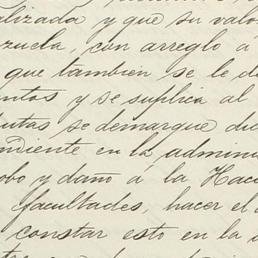 alizada y que su valor
zuela, con arreglo á
que también se le d
ntos y se suplica al
utas se demarque du
ndiente en la admini
obo y daño á la Haci
facultades, hacer el
constar esto en la